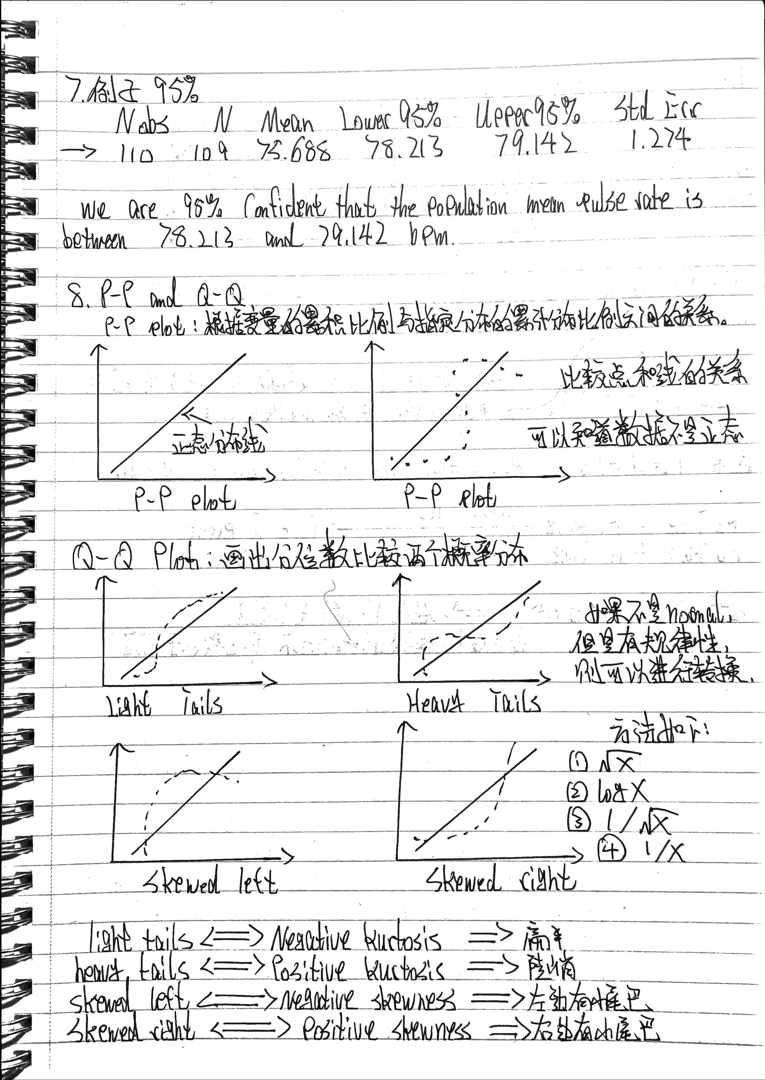 7.例子 95%
N obs N Mean Lower 95% Upper 95% Std Err
→ 110 109 75.688 78.213 79.142 1.274
We are 95% Confident that the population mean pulse rate is
between 78.213 and 79.142 bpm.
8. P-P and Q-Q
P-P plot: 根据变量的累积比例与指定分布的累积分布比例之间的关系。
正态分布线
比较点和线的关系
可以知道数据不是正态
P-P plot P-P plot
Q-Q Plot: 画出分位数比较两个概率分布
如果不是normal,
但是有规律性,
则可以进行转换.
Light Tails Heavy Tails
方法如下:
① √x
② log X
③ 1/√x
④ 1/x
Skewed left Skewed right
light tails <=> Negative kurtosis => 扁平
heavy tails <=> Positive kurtosis => 陡峭
skewed left <=> Negative skewness => 左边有小尾巴
skewed right <=> Positive skewness => 右边有小尾巴